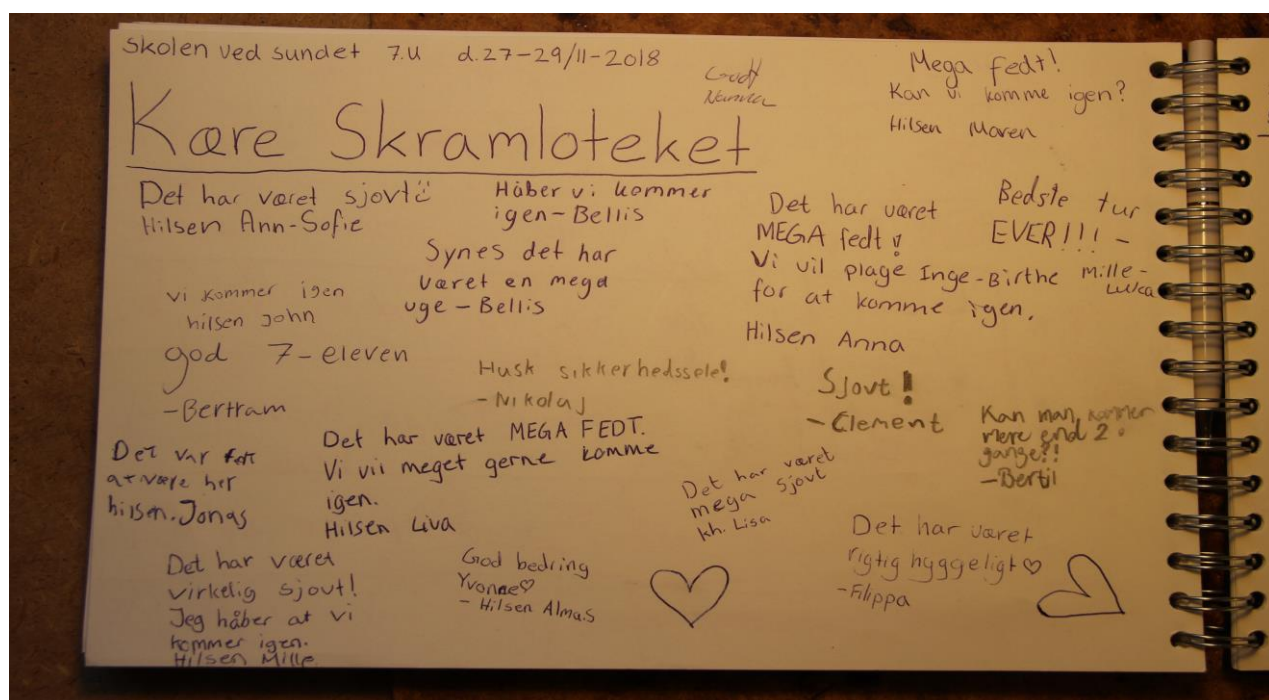 Skolen ved sundet 7.U d.27-29/11-2018
Godt
Kære Skramloteket
Mega fedt!
Kan vi komme igen?
Hilsen Maren
Det har været sjovt
Hilsen Ann-Sofie
Håber vi kommer
igen-Bellis
Synes det har
været en mega
uge - Bellis
Det har været
MEGA fedt!
Vi vil plage Inge-Birthe
for at komme igen.
Hilsen Anna
Bedste tur
EVER!!! -
Mille-
Luka
vi kommer igen
hilsen John
god 7-eleven
-Bertram
Husk sikkerhedssele!
- Nikolaj
Sjovt!
-Clement
Kan man, kommer
mere end 2
gange?!
-Bertil
Det var fedt
at være her
hilsen. Jonas
Det har været MEGA FEDT.
Vi vil meget gerne komme
igen.
Hilsen Liva
Det har været
mega sjovt
kh. Lisa
Det har været
virkelig sjovt!
Jeg håber at vi
kommer igen.
Hilsen Mille
God bedring
Yvonne♡
- Hilsen Alma.S
Det har været
rigtig hyggeligt♡
-Filippa